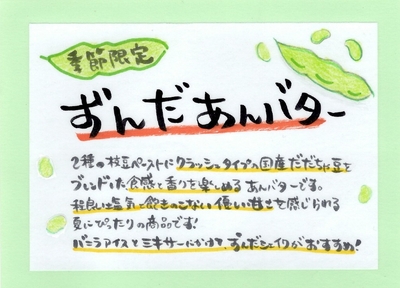 季節限定
ずんだあんバター
2種の枝豆ペーストにクラッシュタイプの国産だだちゃ豆を
ブレンドした食感と香りを楽しめるあんバターです。
程良い塩気と飽きのこない優しい甘さを感じられる
夏にぴったりの商品です!
バニラアイスとミキサーにかけて、ずんだシェイクがおすすめ!